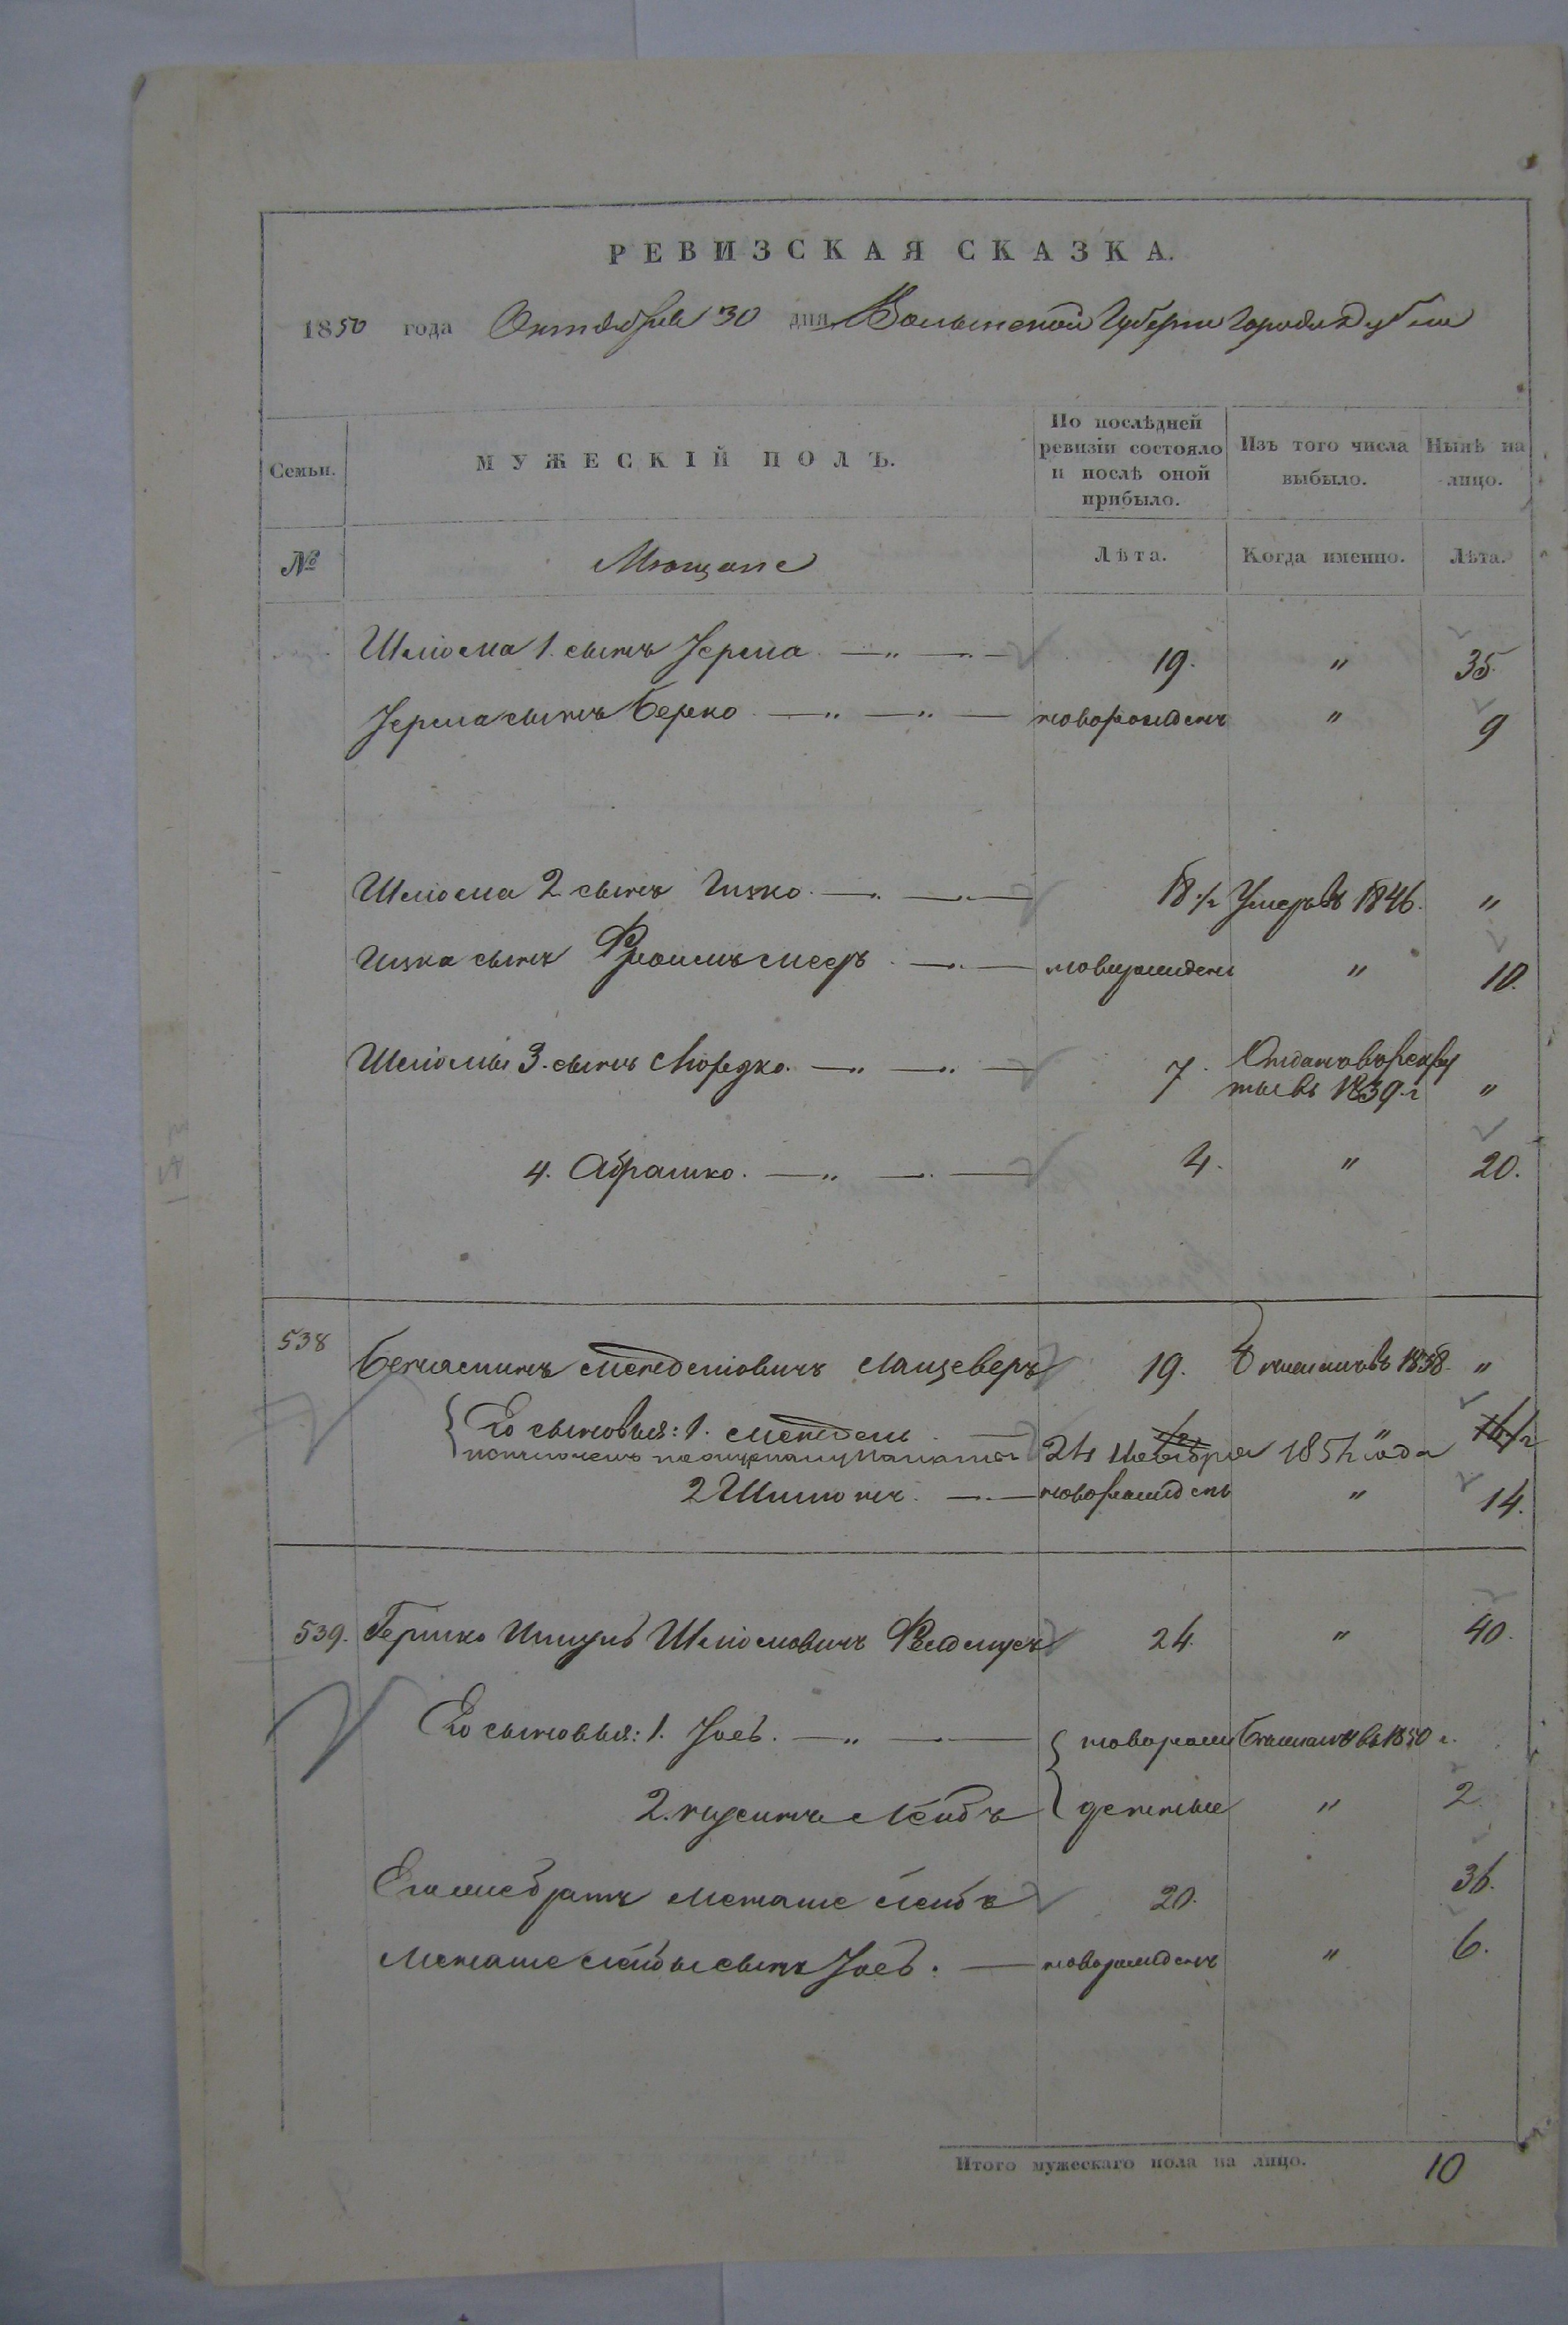 РЕВИЗСКАЯ СКАЗКА.
1850 года Октября 30 дня Волынской Губернии Города Дубна
Семьи. МУЖЕСКІЙ ПОЛЪ. По послѣдней ревизіи состояло и послѣ оной прибыло. Изъ того числа выбыло. Нынѣ на лицо.
№ Мѣщане Лѣта. Когда именно. Лѣта.
Шліома 1. сынъ Іерма 19. " 35.
Іерма сынъ Берко новорожденъ " 9
Шліома 2 сынъ Ицко 18 1/2 Умеръ въ 1846. "
Ицка сынъ Фроимъ Меер новорожденъ " 10.
Шліомы 3. сынъ Мордко. 7. въ 1839. г "
4. Абрашко. 4. " 20.
538 Беніаминъ Менделіовичъ 19. въ 1838. "
Его сыновья: 1. Мендель
24 1851 года
2 новорожденъ " 14.
539. Гершко Шліомовичъ 24. " 40.
Его сыновья: 1. Іось. новорож въ 1850 г.
2. Лейбъ денные " 2
Его же братъ Менаше Лейбъ 20. 36.
Менаше Лейбы сынъ Іось. новорожденъ " 6.
Итого мужескаго пола на лицо. 10